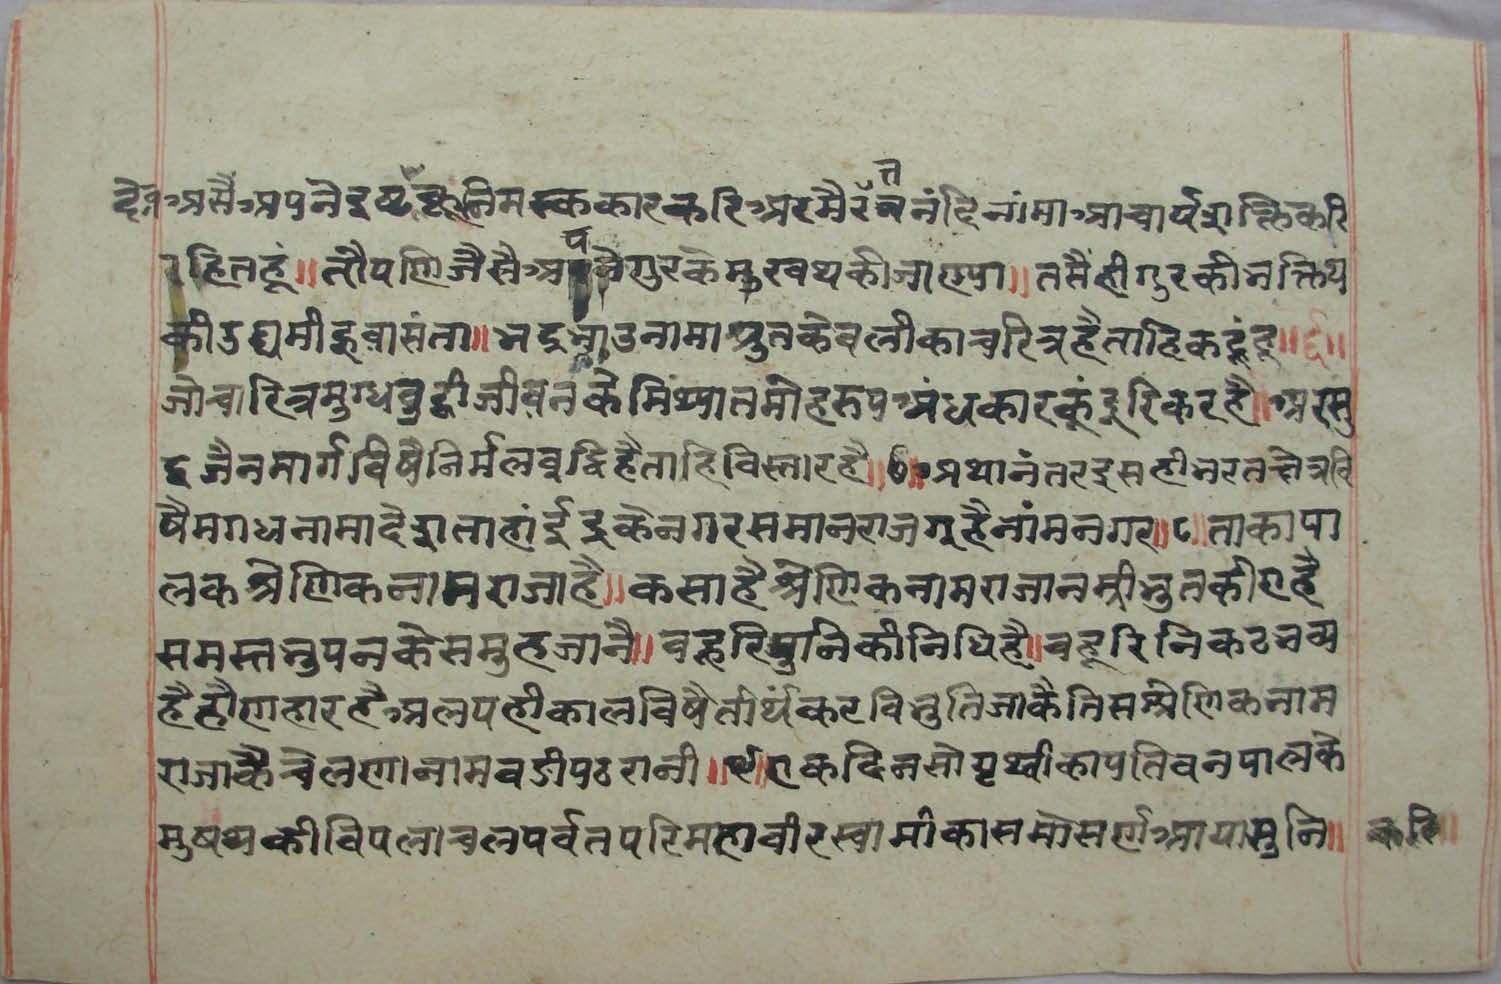 देव असै अपनै इष्ट कू निमस्ककार करि अर मै रत्ननंदि नांमा आचार्य शक्तिकरि
रहितहूं॥ तौपणि जैसै अपनै गुरकै मुखथकी जाण्या॥ तसैंही गुरकी भक्तिथ
की उद्यमी हूवा संता॥ भद्रबाउ नामा श्रुतकेवलीका चरित्र है ताहि कहूं हू॥६॥
जो चारित्र मुग्धबुद्धी जीवनकै मिथ्यात मोहरूप अंधकारकूं दूरिकर है॥ अर सु
द्ध जैनमार्गविषै निर्मल बुद्धि है ताहि विस्तार है॥७॥ अथानंतर इसही भरतक्षेत्रवि
षै मगधनामा देश ताहां ईंद्रकै नगर समान राजगृहै नांम नगर॥८॥ ताका पा
लक श्रेणिक नाम राजा है॥ कसा है श्रेणिक नाम राजा नम्रीभुत कीए है
समस्त नुपनके समुह जानै॥ बहुरि गुनिकी निधि है॥ बहूरि निकट भव्य
है हौणहार है अलपही कालविषै तीर्थंकर विभुति जाकै तिस श्रेणिक नाम
राजाकै चेलणा नाम बडी पठरानी॥९॥ एक दिन सो पृथ्वीका पति वनपालके
मुषथकी विपलाचल पर्वत परि महावीर स्वामीका समोसर्ण आया सुनि॥ करि॥